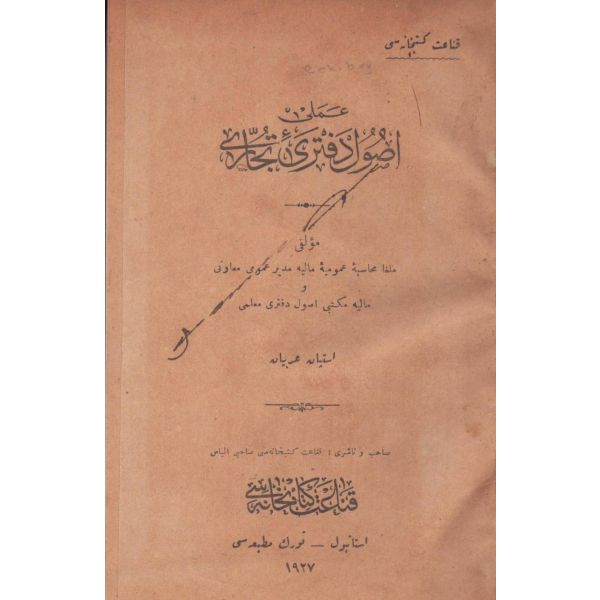 قناعت كتبخانه سی
عملی
اصول دفتری تجاری
مؤلفی
ملغا محاسبهٔ عمومیهٔ مالیه مدیر عمومی معاونی
و
مالیه مكتبی اصول دفتری معلمی
استپان عربیان
صاحب و ناشری : قناعت كتبخانه سی صاحبی الیاس
قناعت كتابخانه سی
استانبول — تورك مطبعه سی
۱۹۲۷